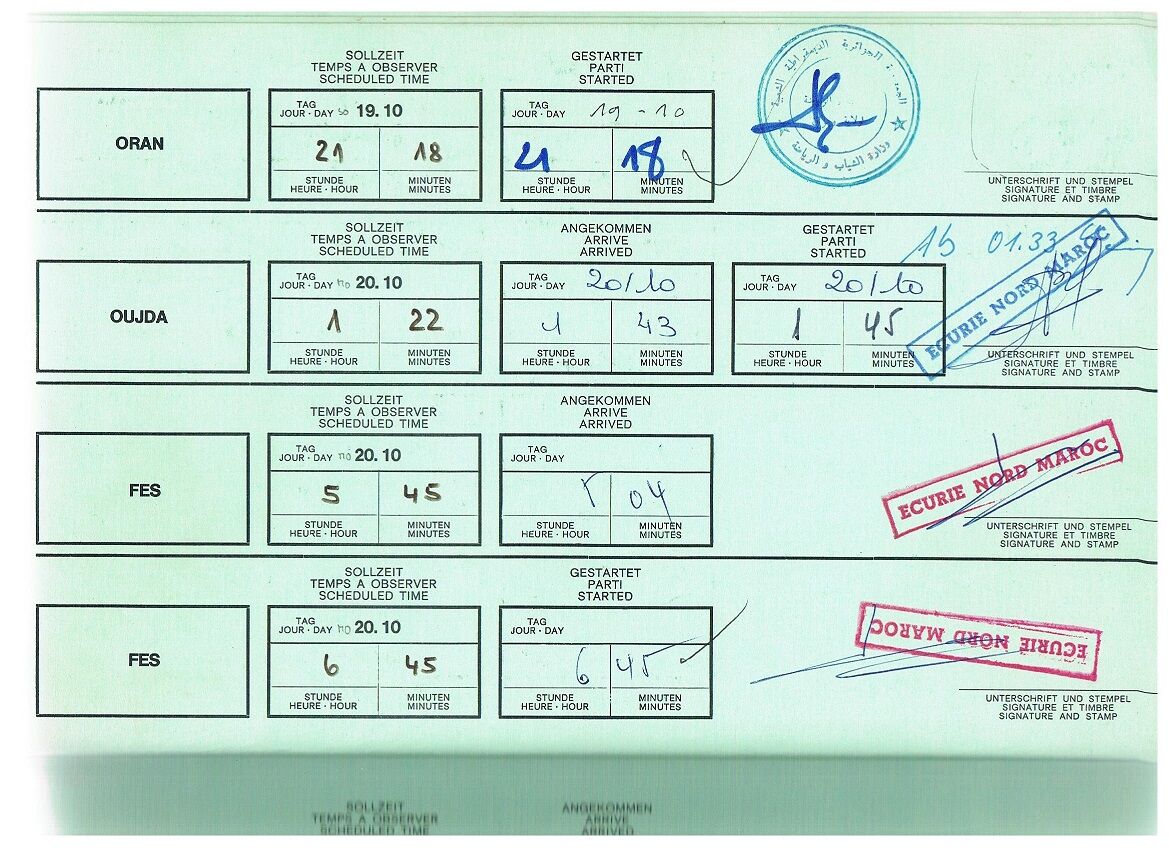 SOLLZEIT
TEMPS A OBSERVER
SCHEDULED TIME
GESTARTET
PARTI
STARTED
ORAN
TAG
JOUR · DAY so 19.10
21 18
STUNDE
HEURE · HOUR
MINUTEN
MINUTES
TAG
JOUR · DAY 19 - 10
21 18
STUNDE
HEURE · HOUR
MINUTEN
MINUTES
وزارة الشباب و الرياضة
UNTERSCHRIFT UND STEMPEL
SIGNATURE ET TIMBRE
SIGNATURE AND STAMP
SOLLZEIT
TEMPS A OBSERVER
SCHEDULED TIME
ANGEKOMMEN
ARRIVE
ARRIVED
GESTARTET
PARTI
STARTED
01.33
OUJDA
TAG
JOUR · DAY mo 20.10
1 22
STUNDE
HEURE · HOUR
MINUTEN
MINUTES
TAG
JOUR · DAY 20/10
1 43
STUNDE
HEURE · HOUR
MINUTEN
MINUTES
TAG
JOUR · DAY 20/10
1 45
STUNDE
HEURE · HOUR
MINUTEN
MINUTES
ECURIE NORD MAROC
UNTERSCHRIFT UND STEMPEL
SIGNATURE ET TIMBRE
SIGNATURE AND STAMP
SOLLZEIT
TEMPS A OBSERVER
SCHEDULED TIME
ANGEKOMMEN
ARRIVE
ARRIVED
FES
TAG
JOUR · DAY mo 20.10
5 45
STUNDE
HEURE · HOUR
MINUTEN
MINUTES
TAG
JOUR · DAY
04
STUNDE
HEURE · HOUR
MINUTEN
MINUTES
ECURIE NORD MAROC
UNTERSCHRIFT UND STEMPEL
SIGNATURE ET TIMBRE
SIGNATURE AND STAMP
SOLLZEIT
TEMPS A OBSERVER
SCHEDULED TIME
GESTARTET
PARTI
STARTED
FES
TAG
JOUR · DAY mo 20.10
6 45
STUNDE
HEURE · HOUR
MINUTEN
MINUTES
TAG
JOUR · DAY
6 45
STUNDE
HEURE · HOUR
MINUTEN
MINUTES
ECURIE NORD MAROC
UNTERSCHRIFT UND STEMPEL
SIGNATURE ET TIMBRE
SIGNATURE AND STAMP
SOLLZEIT
TEMPS A OBSERVER
SCHEDULED TIME
ANGEKOMMEN
ARRIVE
ARRIVED